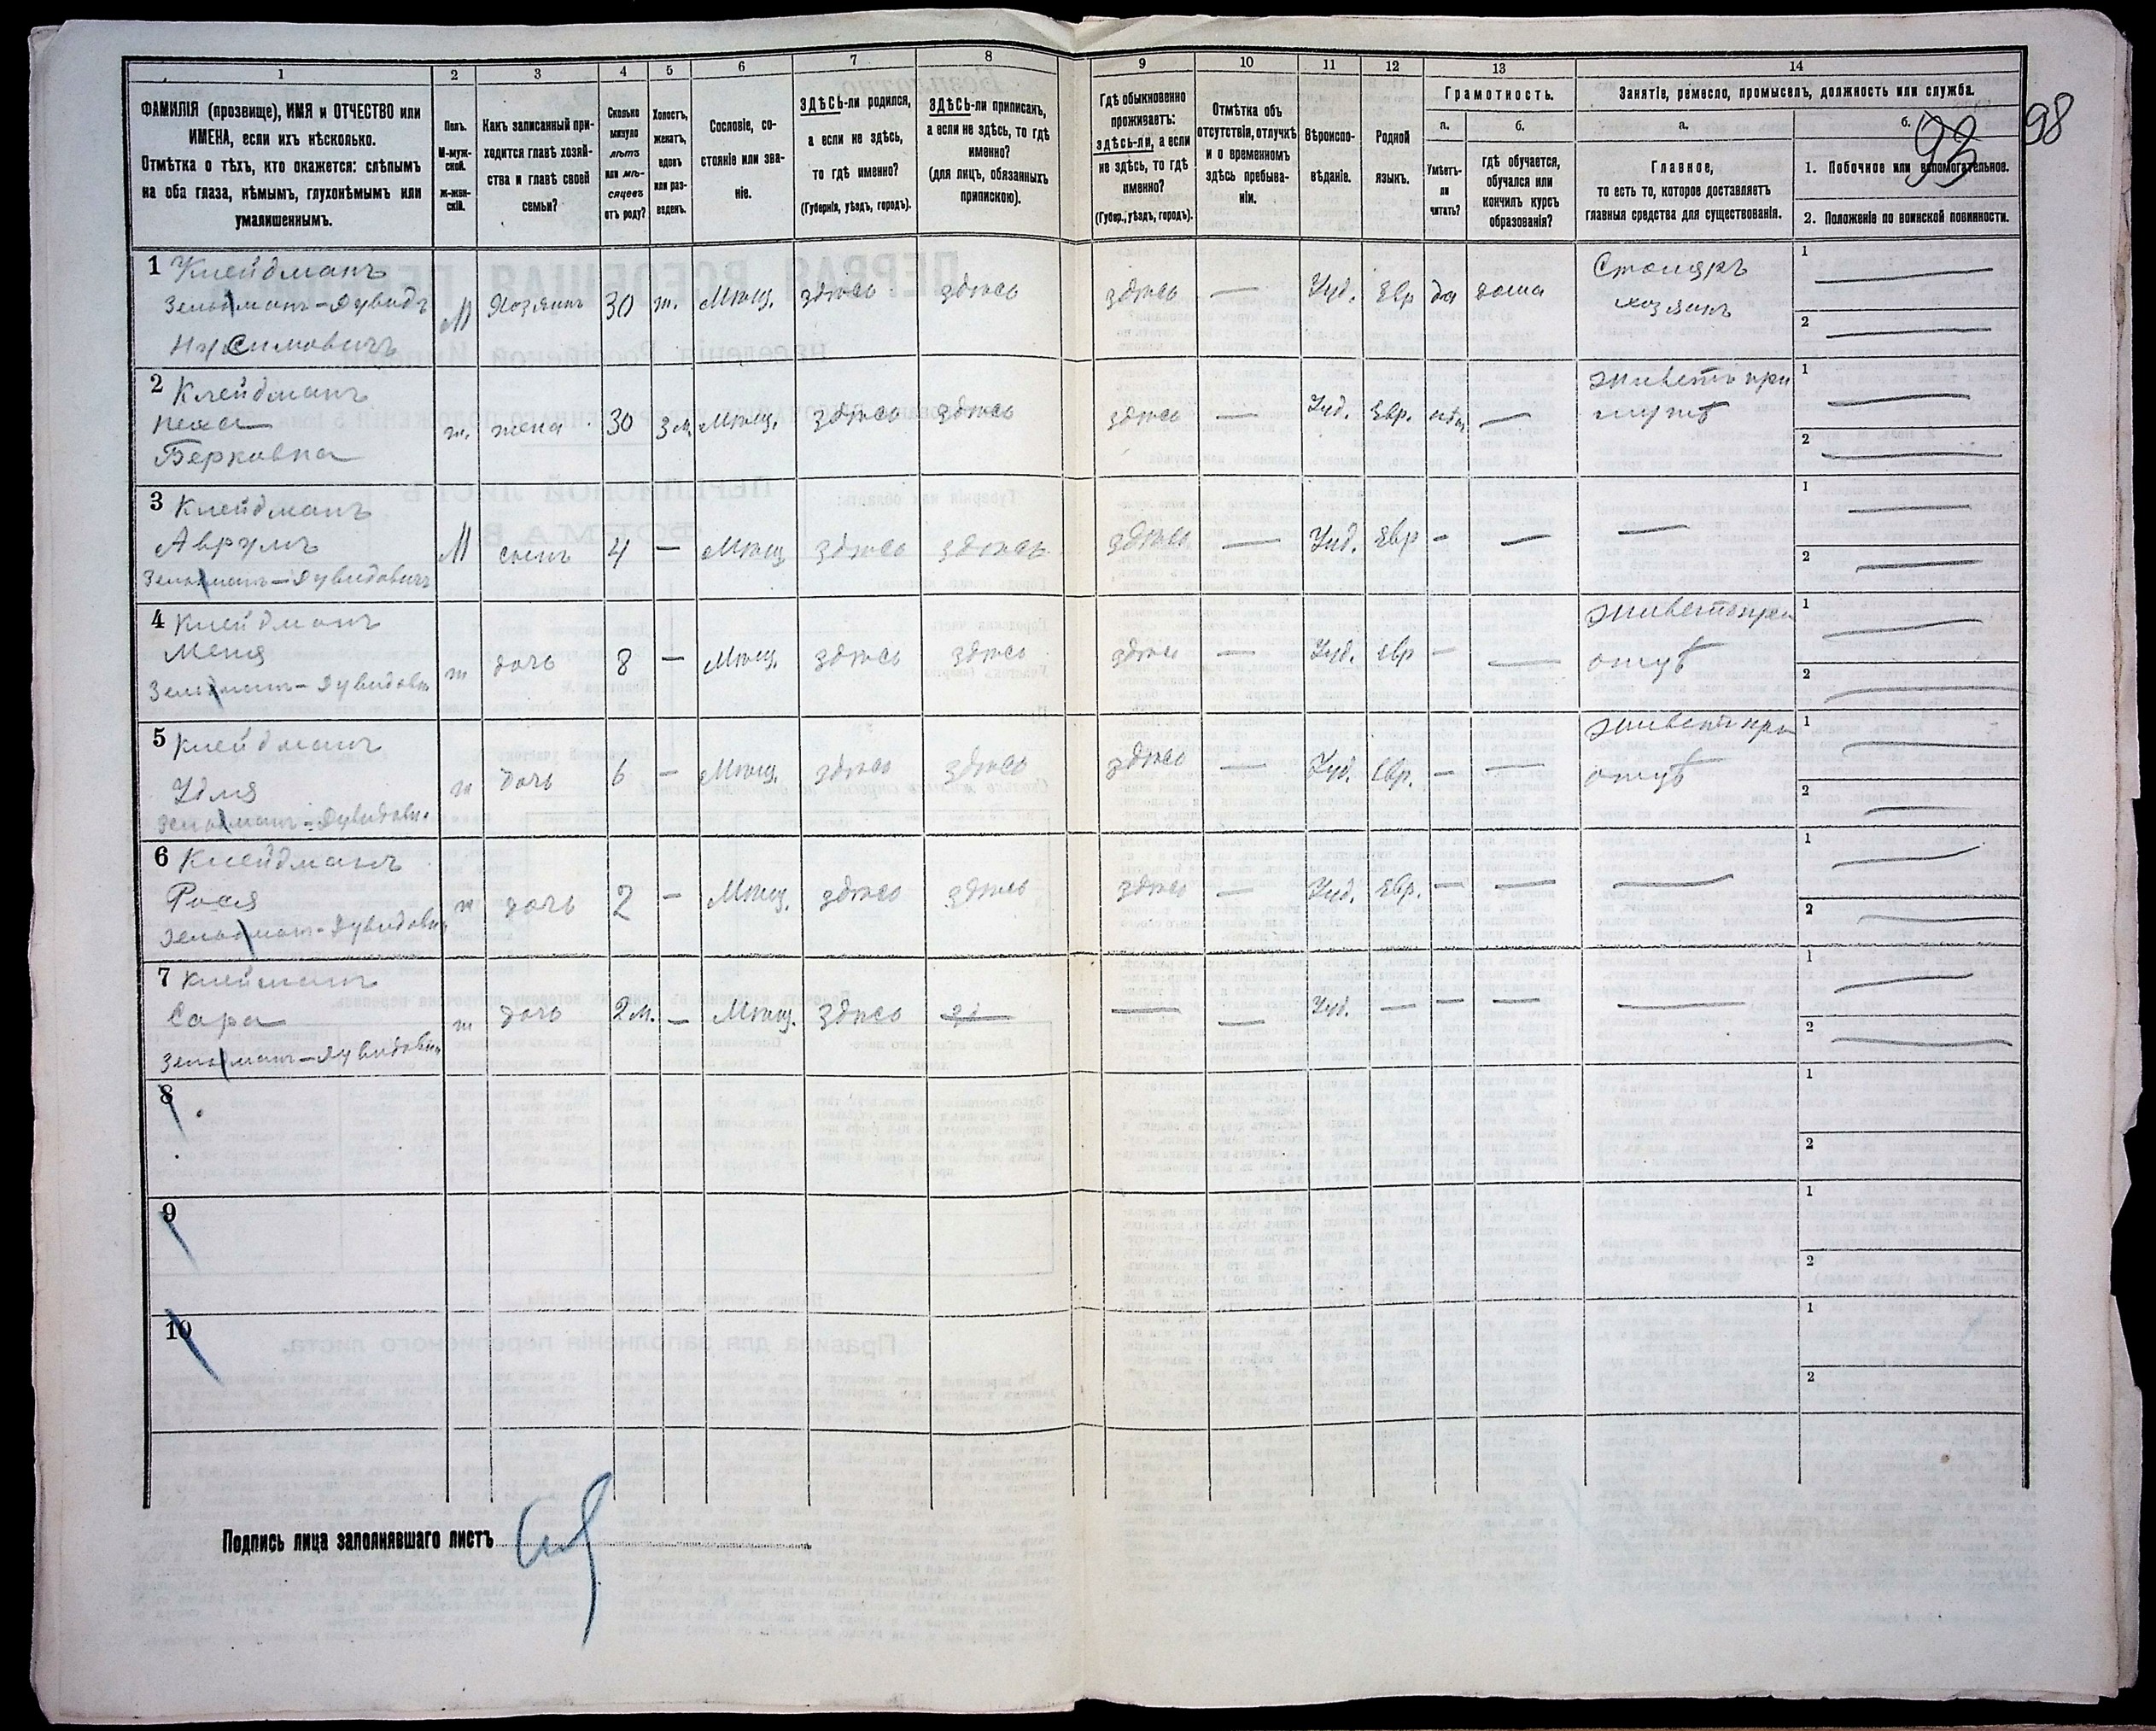 1 2 3 4 5 6 7 8 9 10 11 12 13 14
ФАМИЛІЯ (прозвище), ИМЯ и ОТЧЕСТВО или
ИМЕНА, если ихъ нѣсколько.
Отмѣтка о тѣхъ, кто окажется: слѣпымъ
на оба глаза, нѣмымъ, глухонѣмымъ или
умалишеннымъ.
Полъ.
М-муж-
ской.
ж-жен-
скій.
Какъ записанный при-
ходится главѣ хозяй-
ства и главѣ своей
семьи?
Сколько
минуло
лѣтъ
или мѣ-
сяцевъ
отъ роду?
Холостъ,
женатъ,
вдовъ
или раз-
веденъ.
Сословіе, со-
стояніе или зва-
ніе.
ЗДѢСЬ-ли родился,
а если не здѣсь,
то гдѣ именно?
(Губернія, уѣздъ, городъ).
ЗДѢСЬ-ли приписанъ,
а если не здѣсь, то гдѣ
именно?
(для лицъ, обязанныхъ
припискою).
Гдѣ обыкновенно
проживаетъ:
здѣсь-ли, а если
не здѣсь, то гдѣ
именно?
(Губер., уѣздъ, городъ).
Отмѣтка объ
отсутствіи, отлучкѣ
и о временномъ
здѣсь пребыва-
ніи.
Вѣроиспо-
вѣданіе.
Родной
языкъ.
Грамотность.
а.
Умѣетъ-
ли
читать?
б.
гдѣ обучается,
обучался или
кончилъ курсъ
образованія?
Занятіе, ремесло, промыселъ, должность или служба.
а.
Главное,
то есть то, которое доставляетъ
главныя средства для существованія.
б.
1. Побочное или вспомогательное.
2. Положеніе по воинской повинности.
93
98
1 Клейдманъ
Зельманъ-Дувидъ
Нусимовичъ
М Хозяинъ 30 ж. Мѣщ. здѣсь здѣсь здѣсь — Іуд. Евр да дома
Столяръ
хозяинъ
1 —
2 —
2 Клейдманъ
Песа
Берковна
ж. жена 30 Зм. Мѣщ. здѣсь здѣсь здѣсь — Іуд. Евр. нѣт —
живетъ при
мужѣ
1 —
2 —
3 Клейдманъ
Аврумъ
Зельманъ-Дувидовичъ
М сынъ 4 — Мѣщ здѣсь здѣсь здѣсь — Іуд. Евр — — —
1 —
2 —
4 Клейдманъ
Меня
Зельманъ-Дувидовн
ж дочь 8 — Мѣщ. здѣсь здѣсь здѣсь — Іуд. Евр — —
живетъ при
отцѣ
1 —
2 —
5 Клейдманъ
Удля
Зельманъ-Дувидовн.
ж дочь 6 — Мѣщ. здѣсь здѣсь здѣсь — Іуд. Евр. — —
живетъ при
отцѣ
1 —
2 —
6 Клейдманъ
Рося
Зельманъ-Дувидовн
ж дочь 2 — Мѣщ. здѣсь здѣсь здѣсь — Іуд. Евр. — — —
1 —
2 —
7 Клейманъ
Сара
Зельманъ-Дувидовн
ж дочь 2 м. — Мѣщ. здѣсь зд — — Іуд. — — — —
1 —
2 —
8
1
2
9
1
2
10
1
2
Подпись лица заполнявшаго листъ